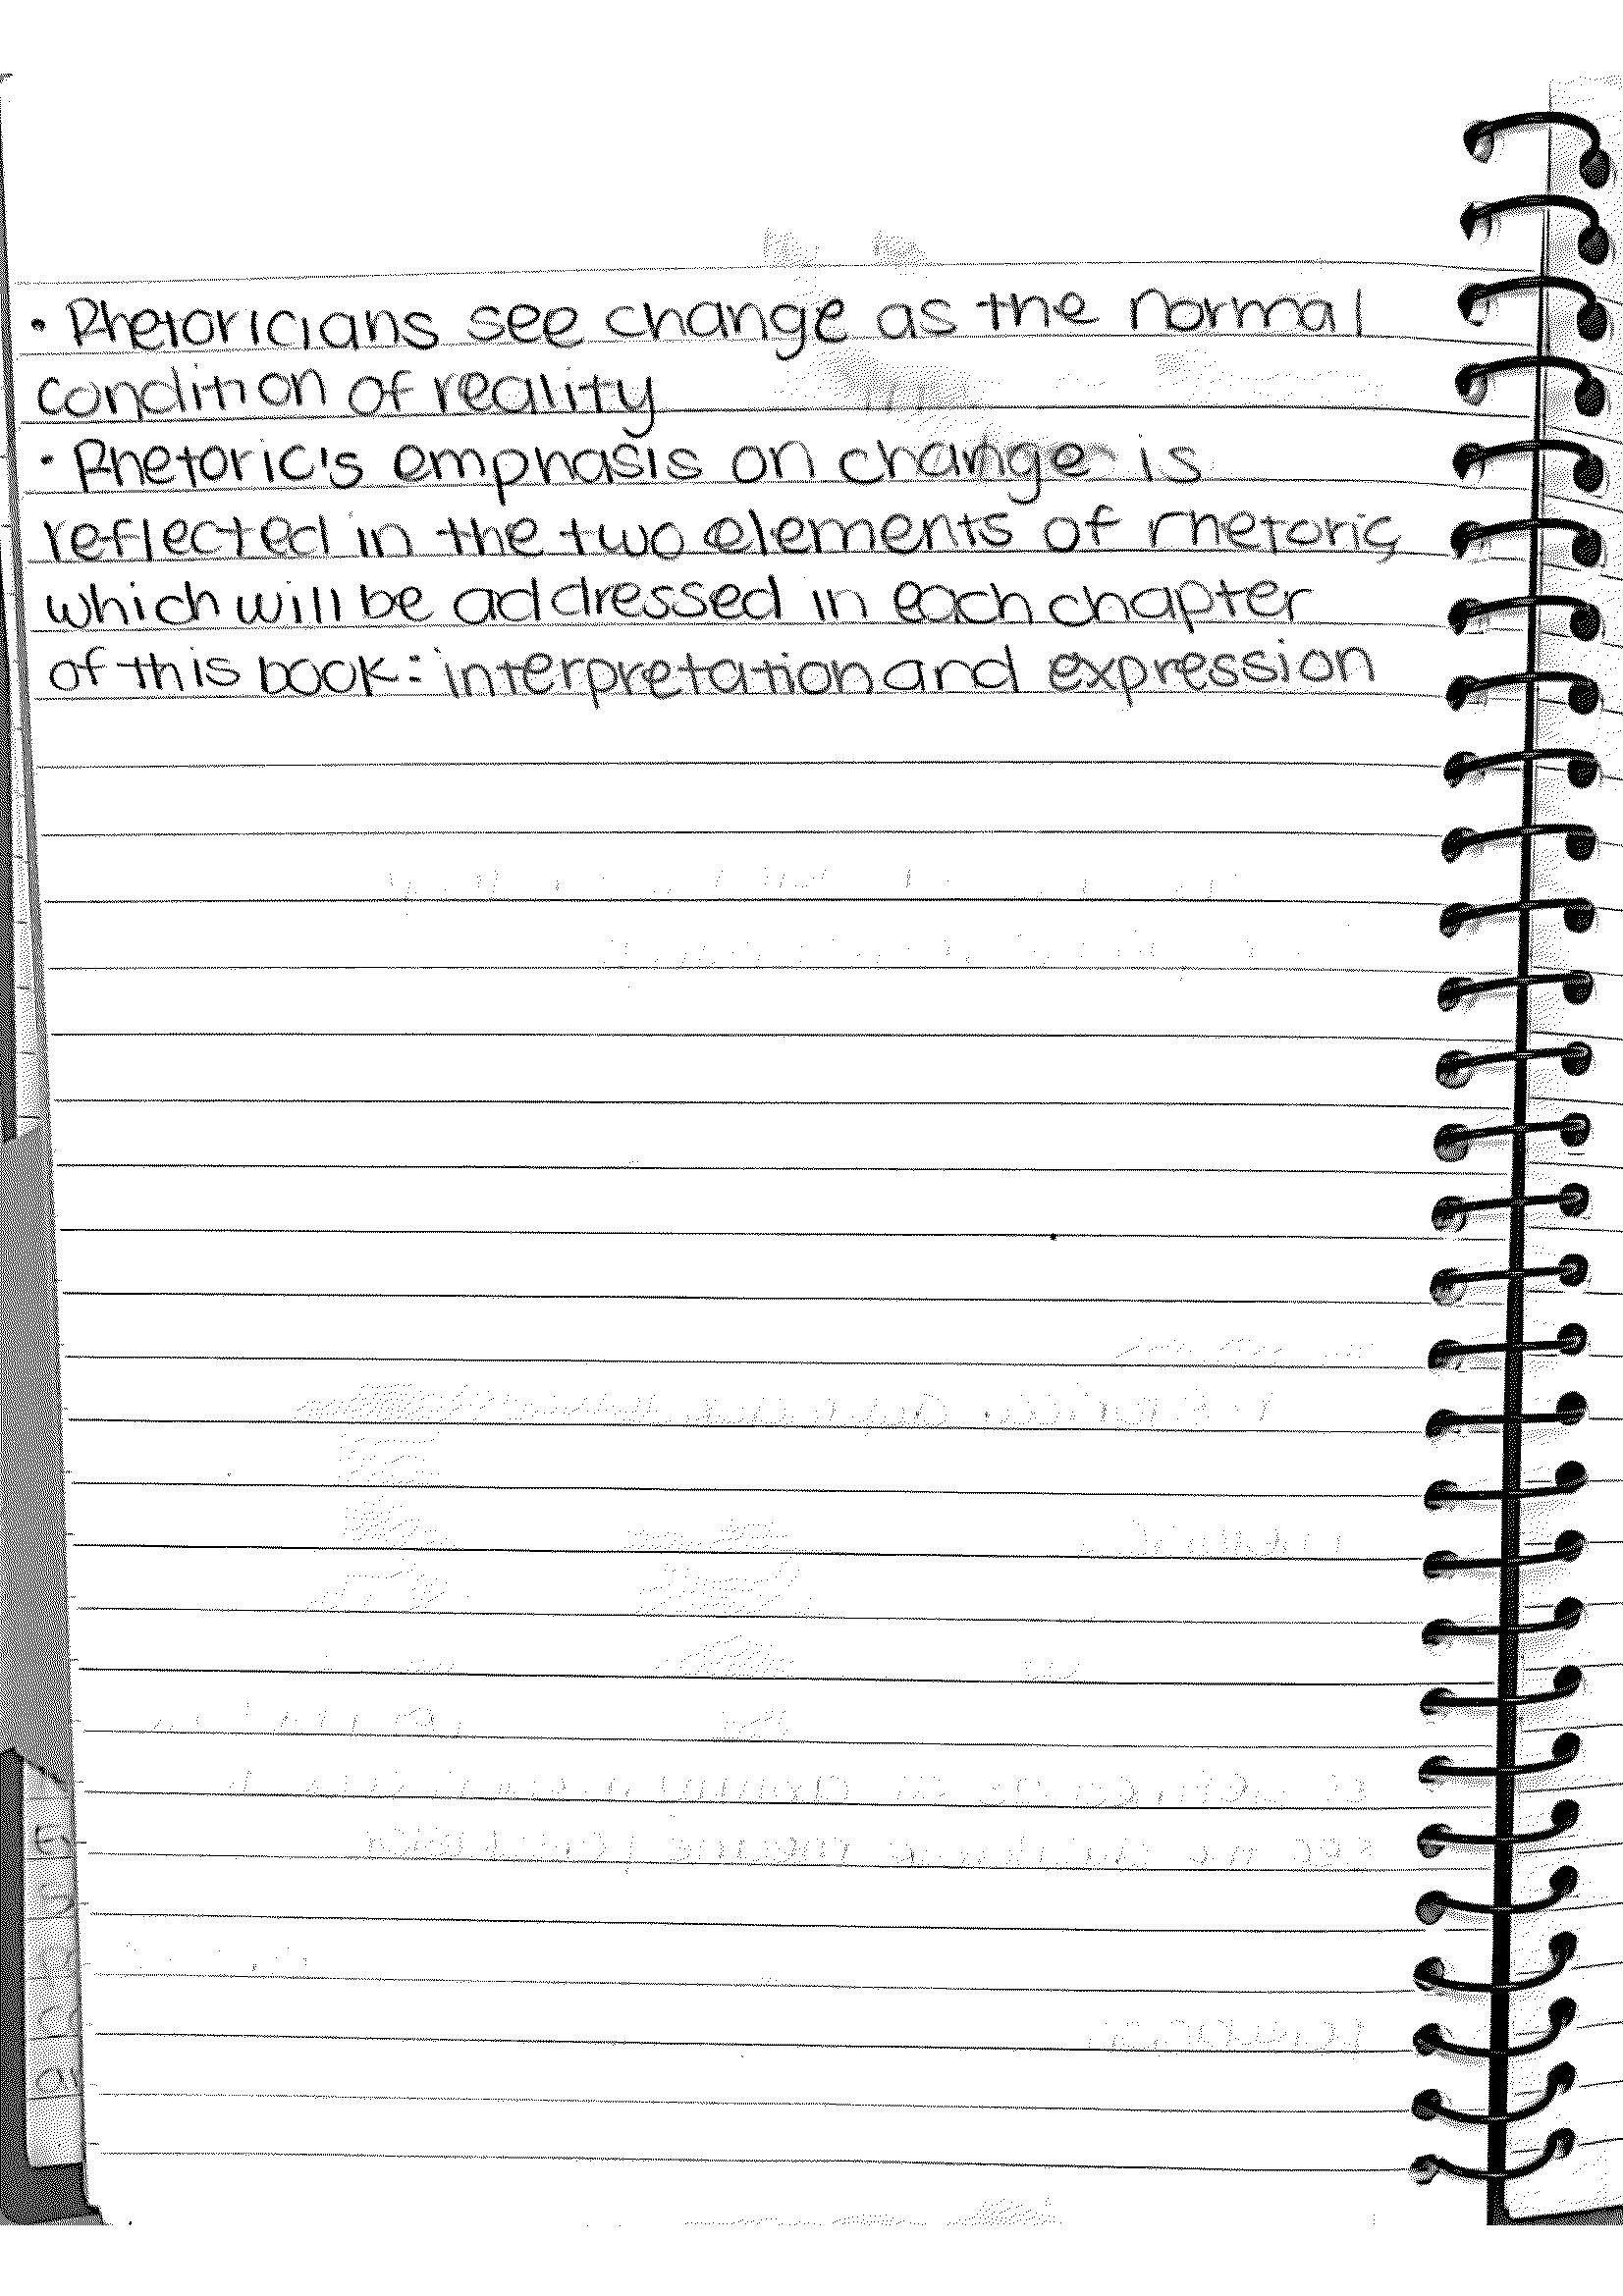 • Rhetoricians see change as the normal
condition of reality
• Rhetoric's emphasis on change is
reflected in the two elements of rhetoric,
which will be addressed in each chapter
of this book: interpretation and expression